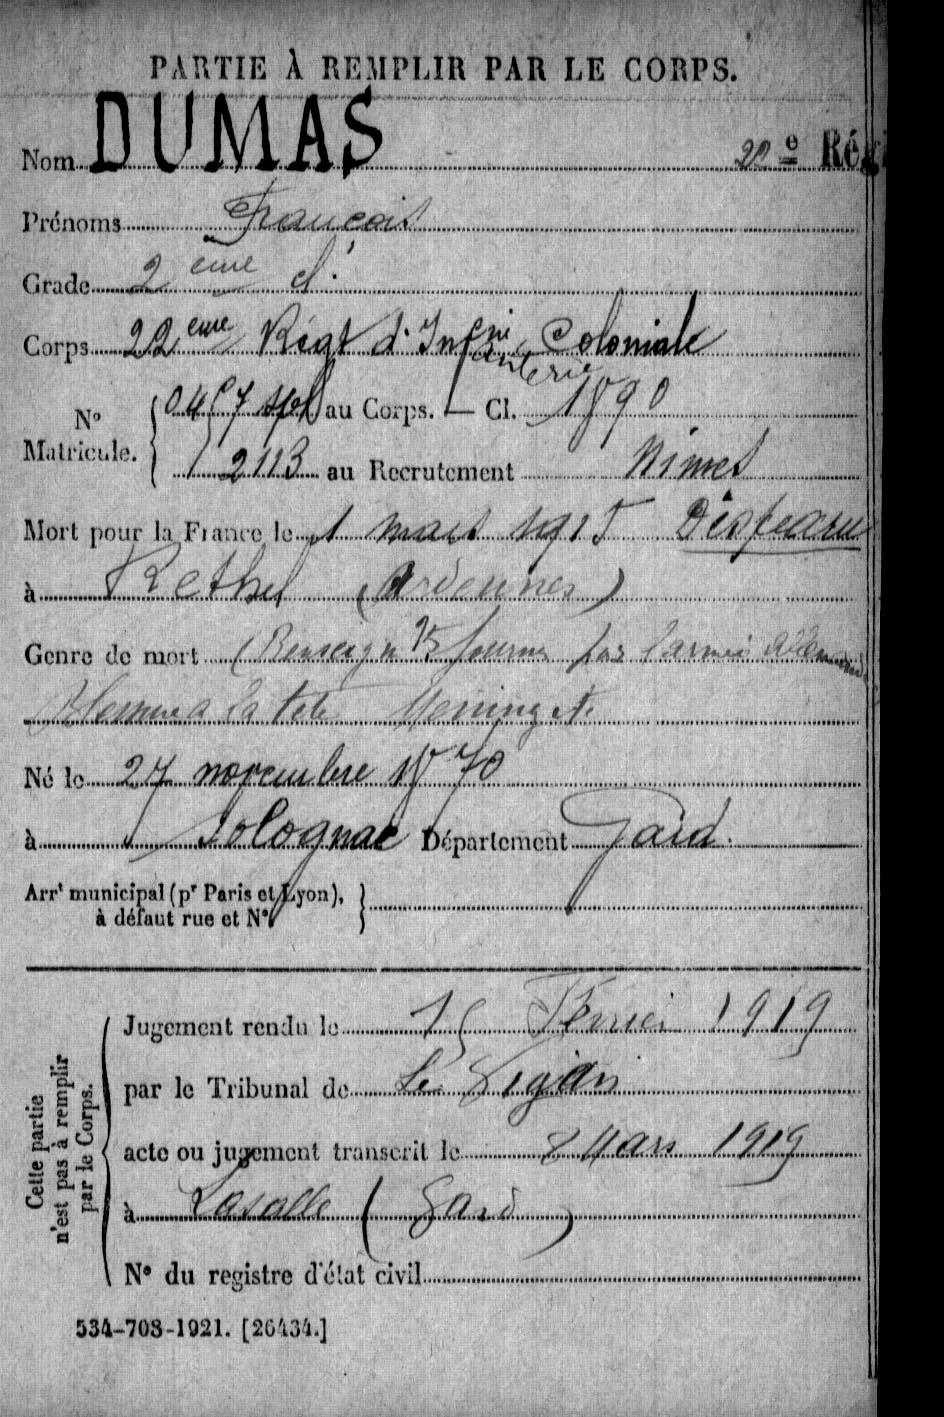 PARTIE À REMPLIR PAR LE CORPS.
Nom DUMAS 22e Rég
Prénoms François
Grade 2ème cl.
Corps 22eme Régt d'Infanterie Coloniale
N° Matricule. au Corps. — Cl. 1890
2113 au Recrutement Nimes
Mort pour la France le 1 mars 1915 Disparu
à Rethel (Ardennes)
Genre de mort (Renseign ts fournis par l'armée allemande
Blessure a la tete Meningite
Né le 27 novembre 1870
à Département Gard.
Arrt municipal (pr Paris et Lyon),
à défaut rue et N°.
Cette partie
n'est pas à remplir
par le Corps.
Jugement rendu le 15 Février 1919
par le Tribunal de Le Vigan
acte ou jugement transcrit le 8 Mars 1919
à Lasalle (Gard)
N° du registre d'état civil
534-708-1921. [26434.]